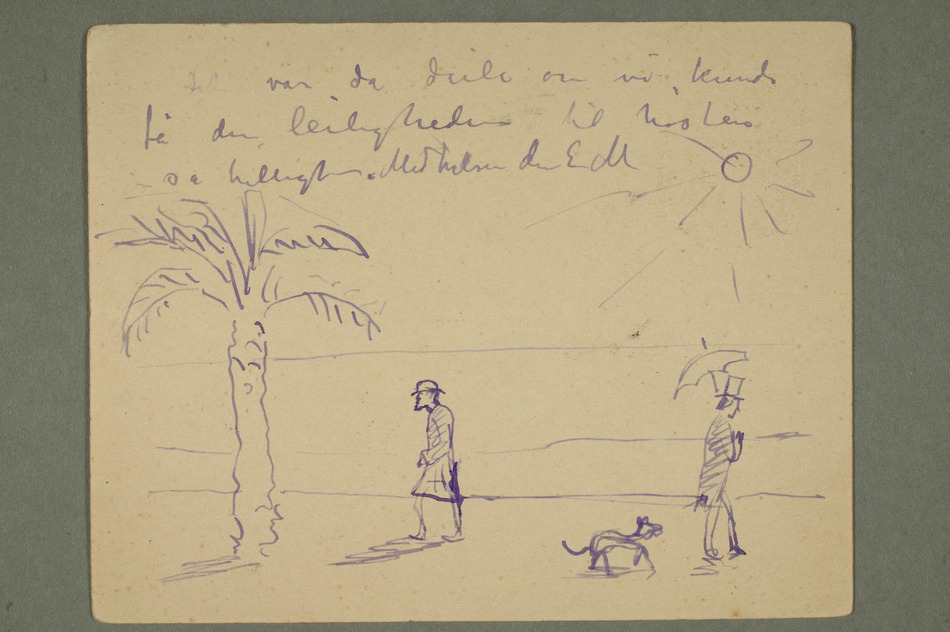 Det var da deile om vi kunde
få den leiligheden til høsten
så hellig. Med hilsen din E M